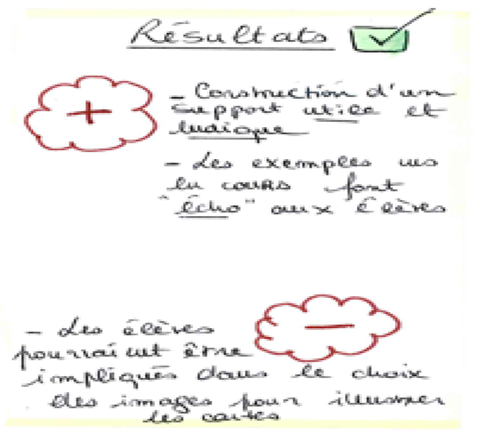 Résultats
+
- Construction d'un
support utile et
ludique
- Les exemples vus
en cours font
"écho" aux élèves
-
- Les élèves
pourraient être
impliqués dans le choix
des images pour illustrer
les cartes